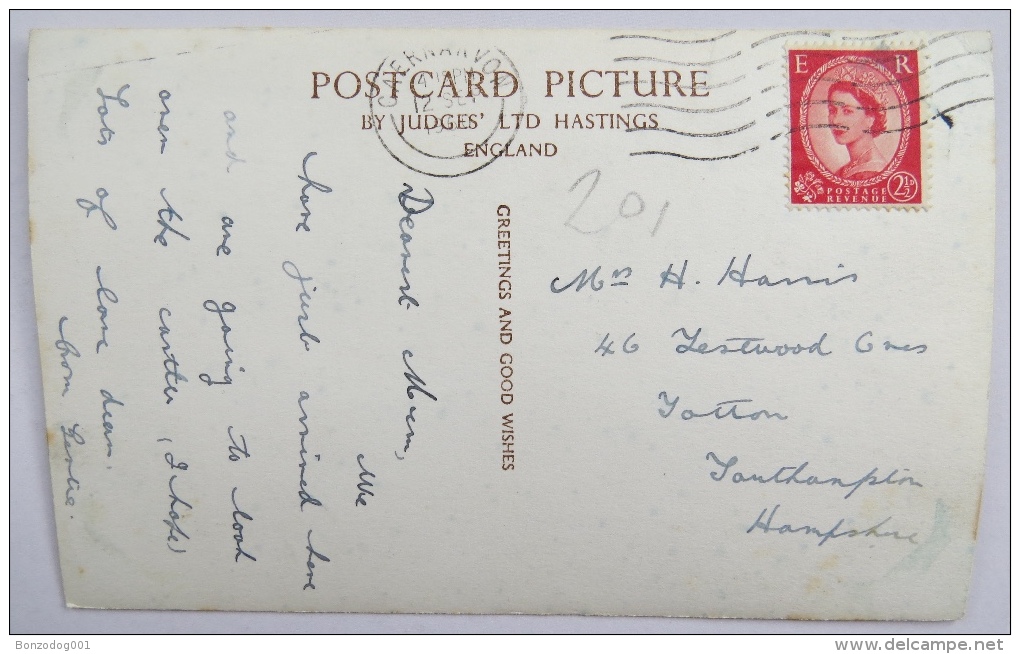 CAERNARVON
12 SEP
POSTCARD PICTURE
BY JUDGES' LTD HASTINGS
ENGLAND
E R
POSTAGE
REVENUE
2½D
201
GREETINGS AND GOOD WISHES
Dearest Mum,
We
have just arrived here
and are going to look
over the castle, (I hope)
Lots of love dear.
from
Mrs H. Harris
46 Testwood Cres
Totton
Southampton
Hampshire
Bonzodog001
www.delcampe.net